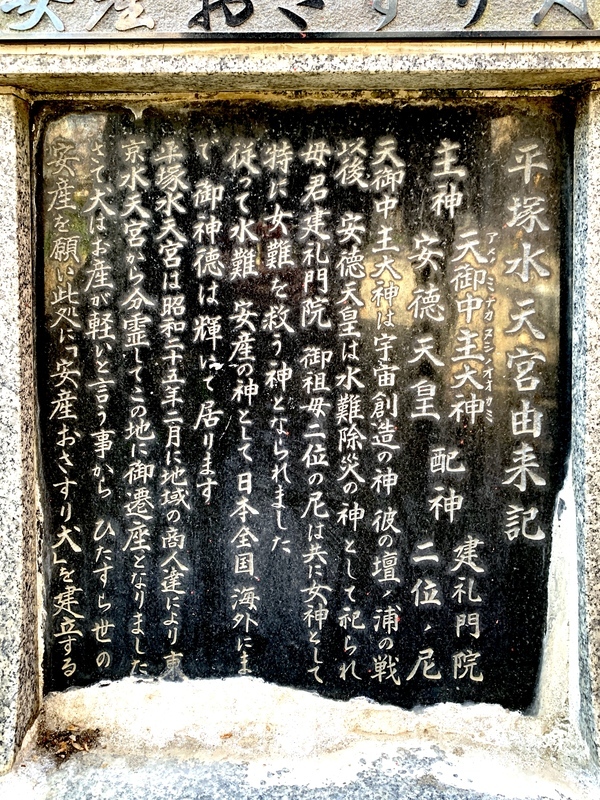 安産おさすり
平塚水天宮由来記
アメノミナカヌシノオオカミ
主神 天御中主大神 配神 建礼門院
安徳天皇 二位ノ尼
天御中主大神は宇宙創造の神 彼の壇ノ浦の戦
以後 安徳天皇は水難除災の神として祀られ
母君建礼門院 御祖母二位の尼は共に女神として
特に女難を救う神となられました
従って水難 安産の神として日本全国、海外にま
で 御神徳は輝いて居ります
平塚水天宮は昭和二十五年二月に地域の商人達により東
京水天宮から分霊してこの地に御遷座となりました
さて犬はお産が軽いと言う事から ひたすら世の
安産を願い此処に「安産おさすり犬」を建立する